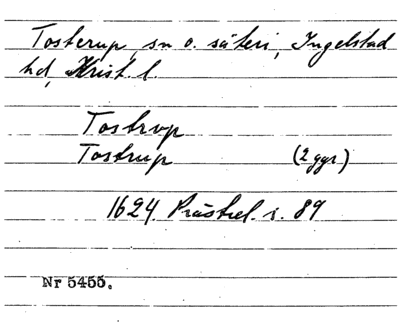 Tosterup, sn o. säteri, Ingelstad
hd, Krist. l.
Tostrvp
Tostrup (2 ggr)
1624 Prästrel. s. 89
Nr 5455.